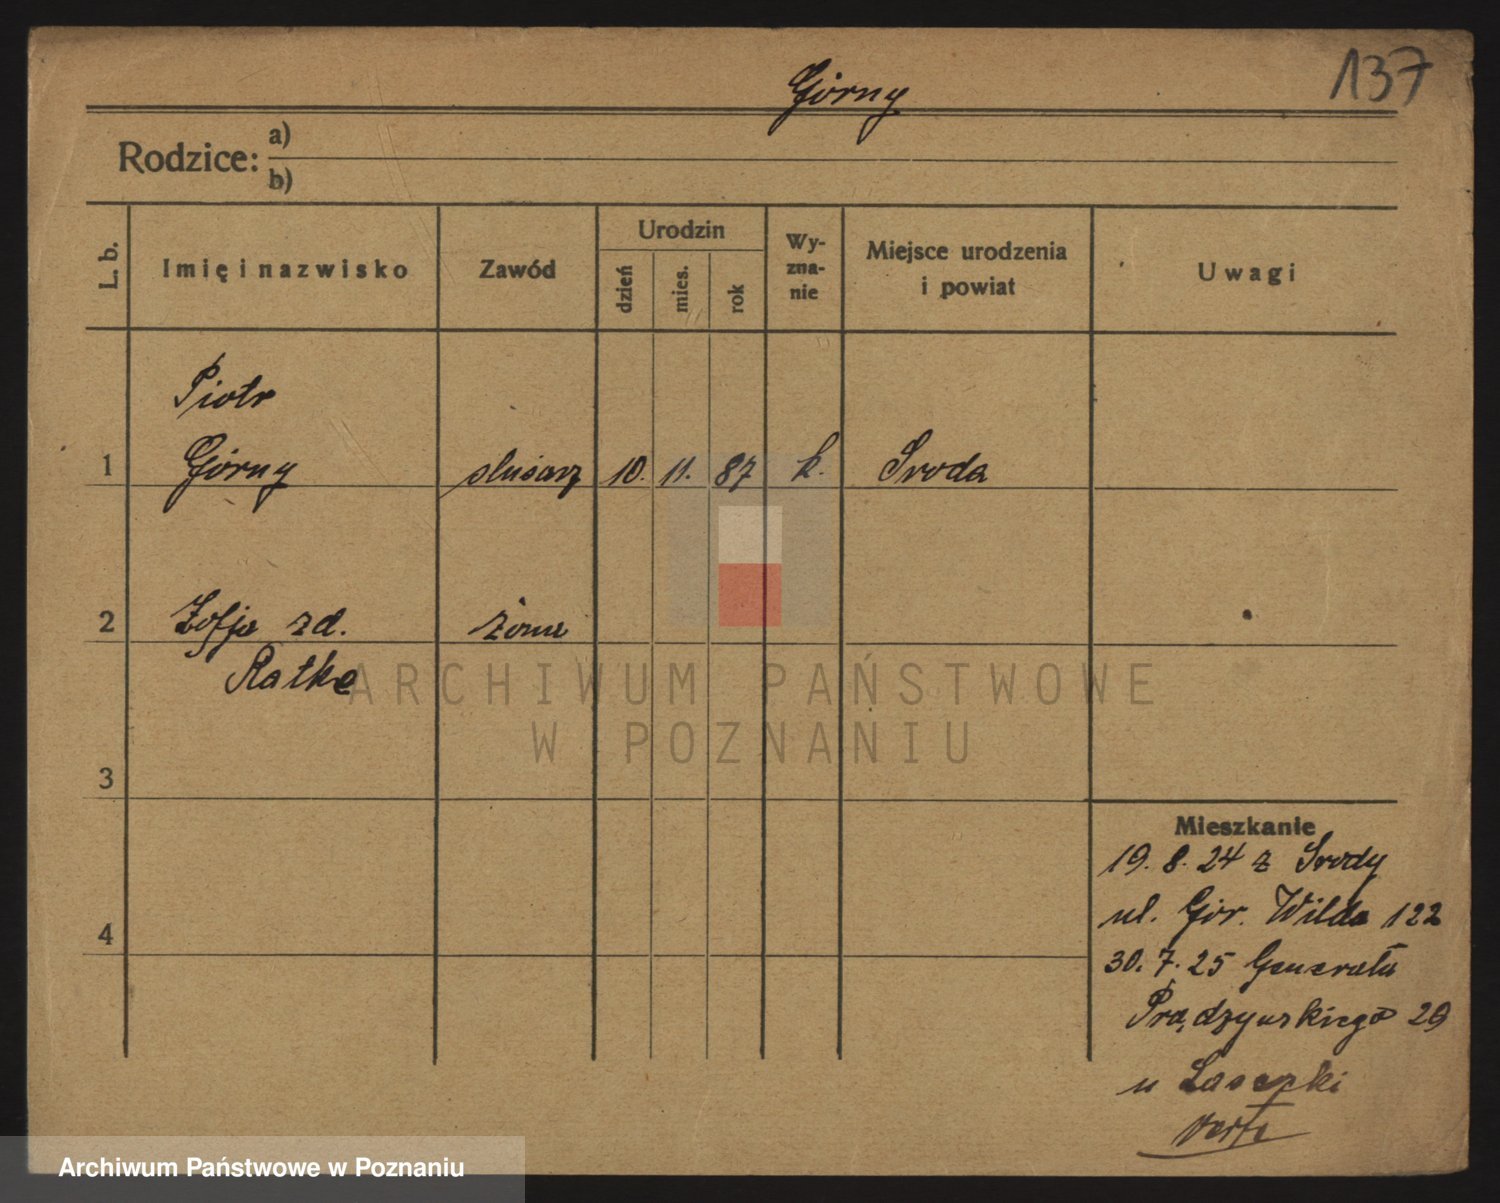 Górny
137
Rodzice: a)
b)
L. b.
Imię i nazwisko
Zawód
Urodzin
dzień
mies.
rok
Wy-
zna-
nie
Miejsce urodzenia
i powiat
Uwagi
Piotr
1 Górny ślusarz 10. 11. 87 k. Środa
2 Zofja zd. żona
Ratke
ARCHIWUM PAŃSTWOWE
W POZNANIU
3
Mieszkanie
19. 8. 24 z Środy
ul. Gór. Wilda 122
4
30. 7. 25 Generała
Prądzyńskiego 29
u
verte
Archiwum Państwowe w Poznaniu